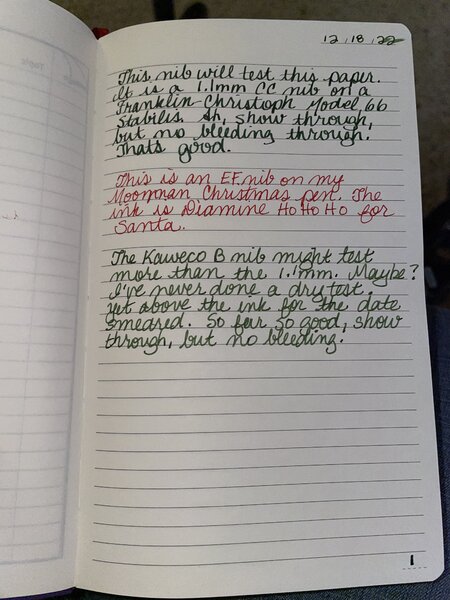 12, 18, 22
This nib will test this paper.
It is a 1.1mm CC nib on a
Franklin-Christoph Model 66
Stabilis. Ah, show through,
but no bleeding through.
Thats good.
This is an EF nib on my
Moonman Christmas pen. The
ink is Diamine Ho Ho Ho for
Santa.
The Kaweco B nib might test
more than the 1.1mm. Maybe?
I've never done a dry test,
yet above the ink for the date
smeared. So far so good, show
through, but no bleeding.
1